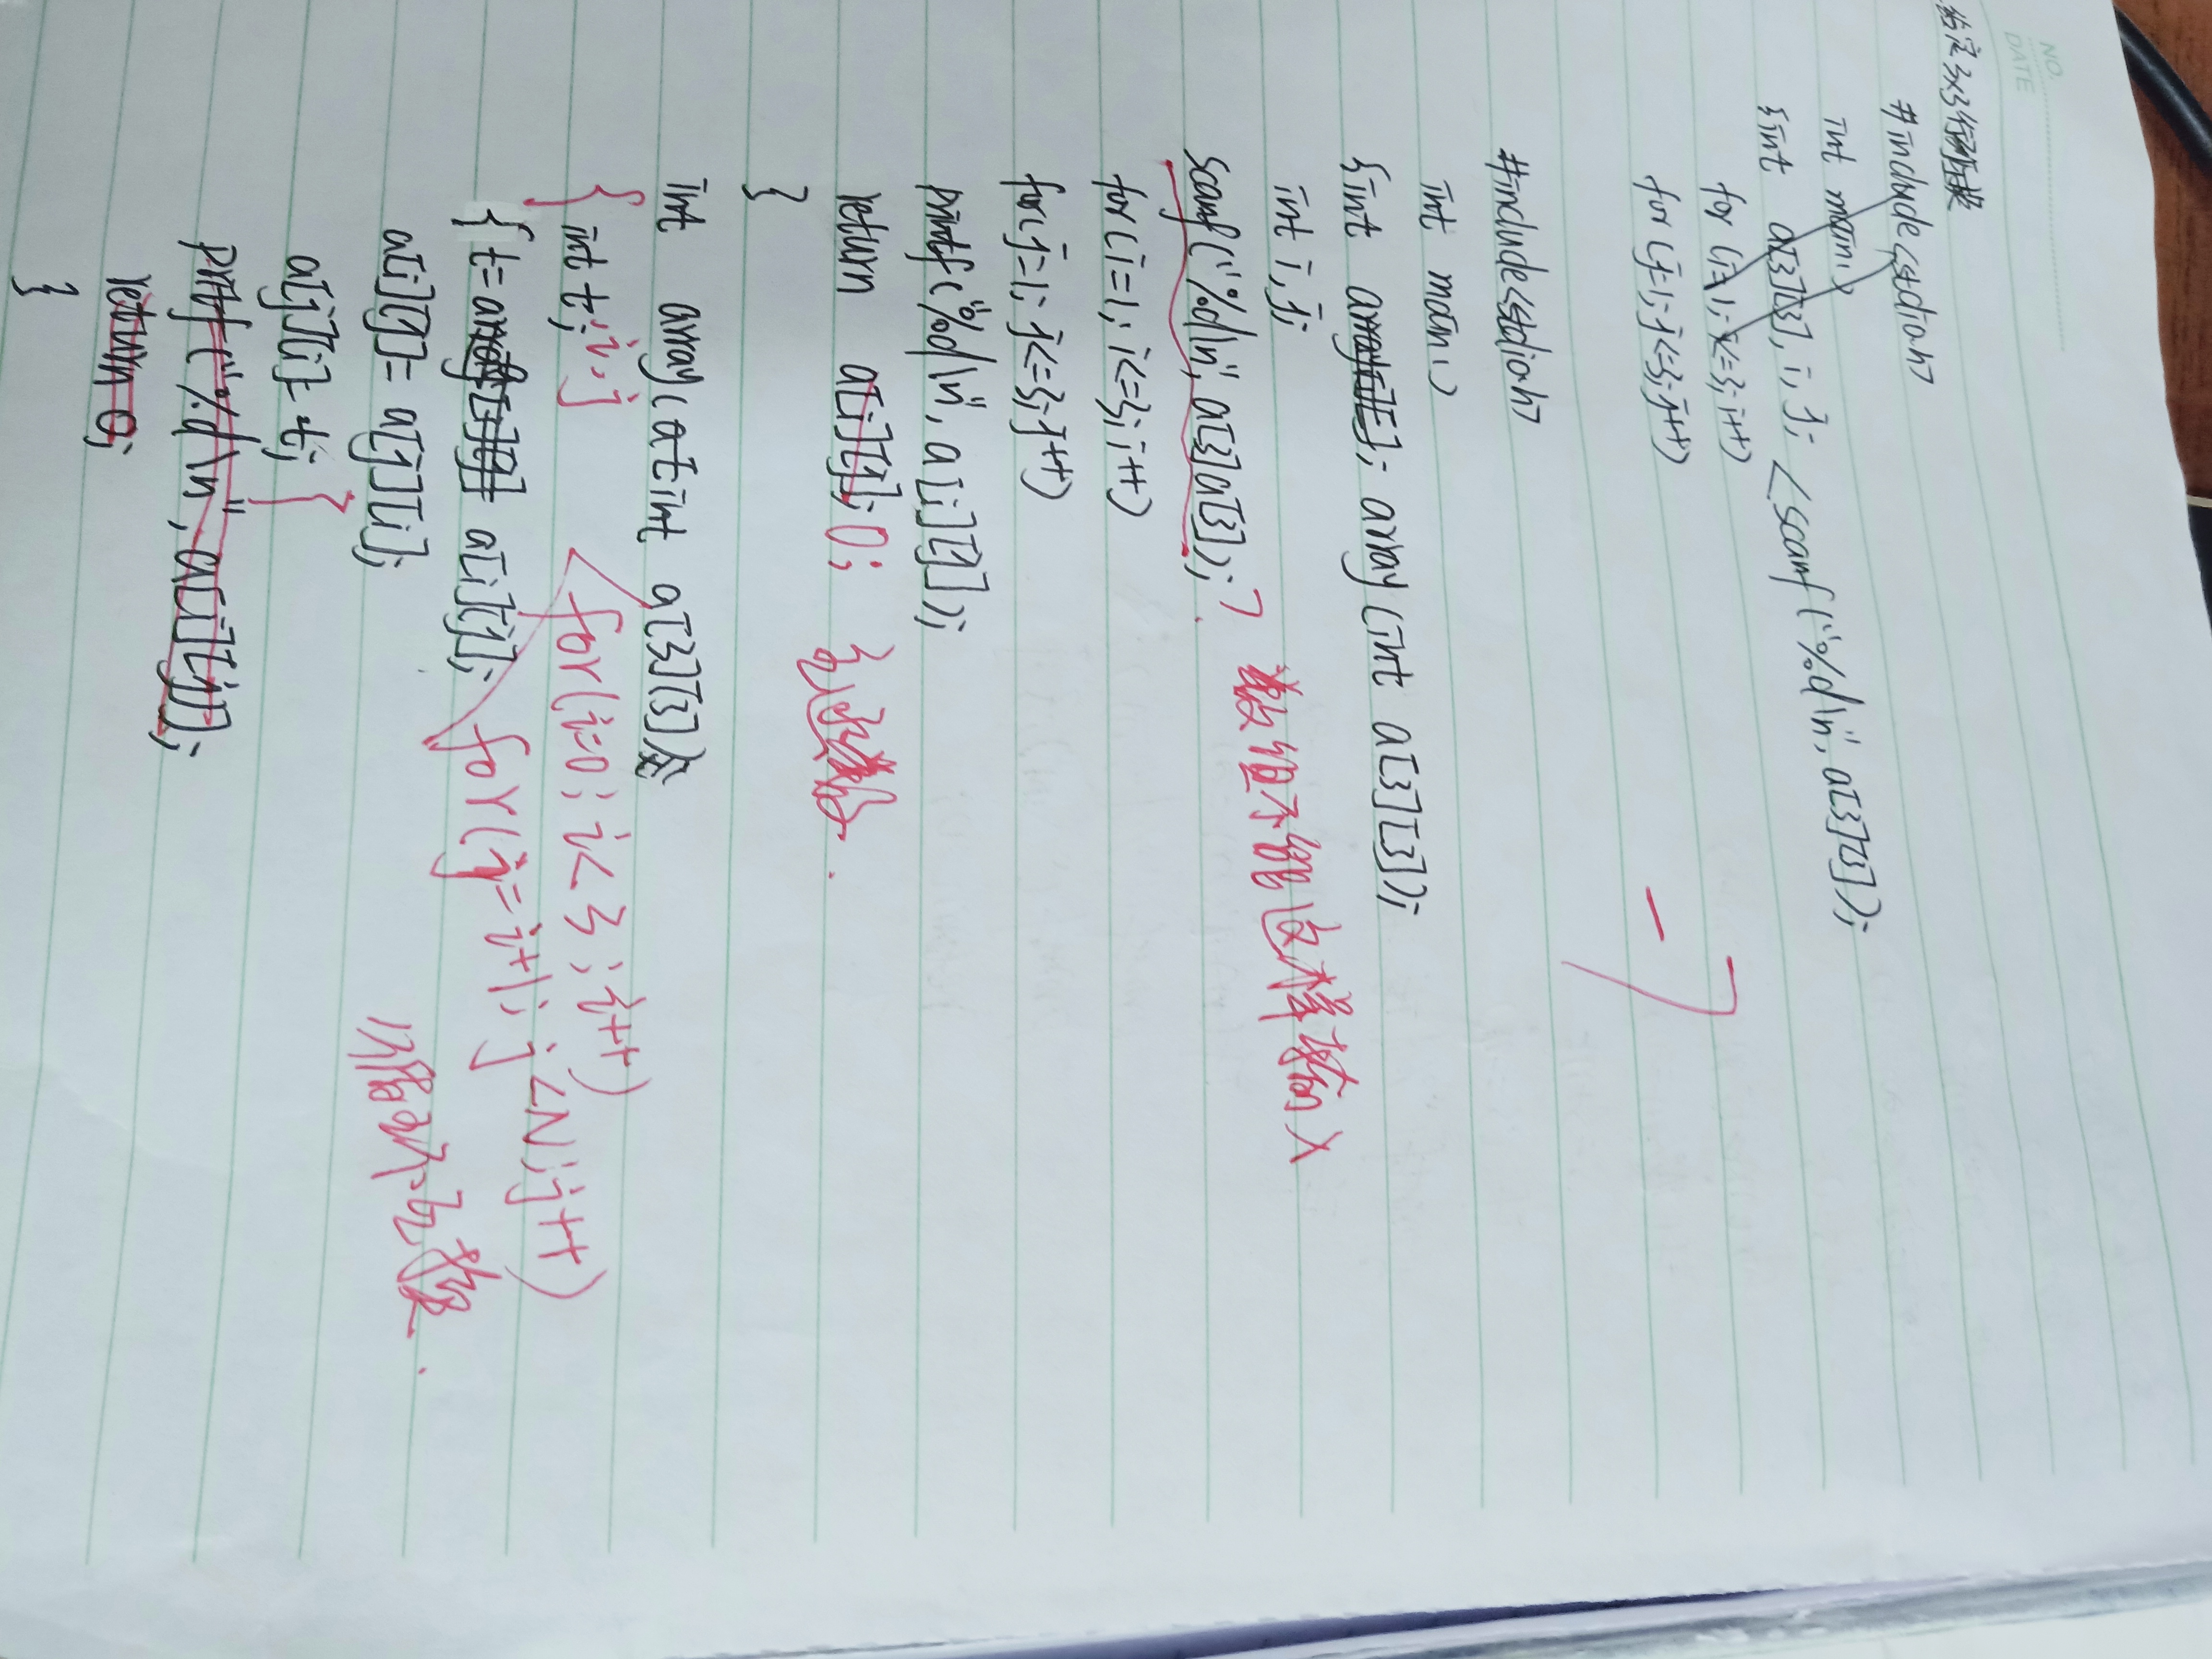 NO.
DATE
给定3x3行列互换
#include<stdioh>
int main()
{int a[3][3], i, j; <scanf("%d\n", a[3][3]);
for (i=1; i<=3; i++)
for (j=1; j<=3; j++)
#include<stdioh>
int main()
{int array(int a[3][3]);
int i, j;
scanf("%d\n", a[3]a[3]); ? 数组不能这样输入
for (i=1; i<=3; i++)
for j=1; j<=3; j++)
printf("%d\n", a[i][j]);
return a[i][j]; 0; 主函数.
}
int array(int a[3][3])
{ int t, i, j for(i=0; i<3; i++)
{t= a[i][j]; for(j=i+1; j<N; j++)
a[i][j]= a[j][i];
a[j][i]= t; }
printf("%d\n", a[i][j]);
return 0;
}